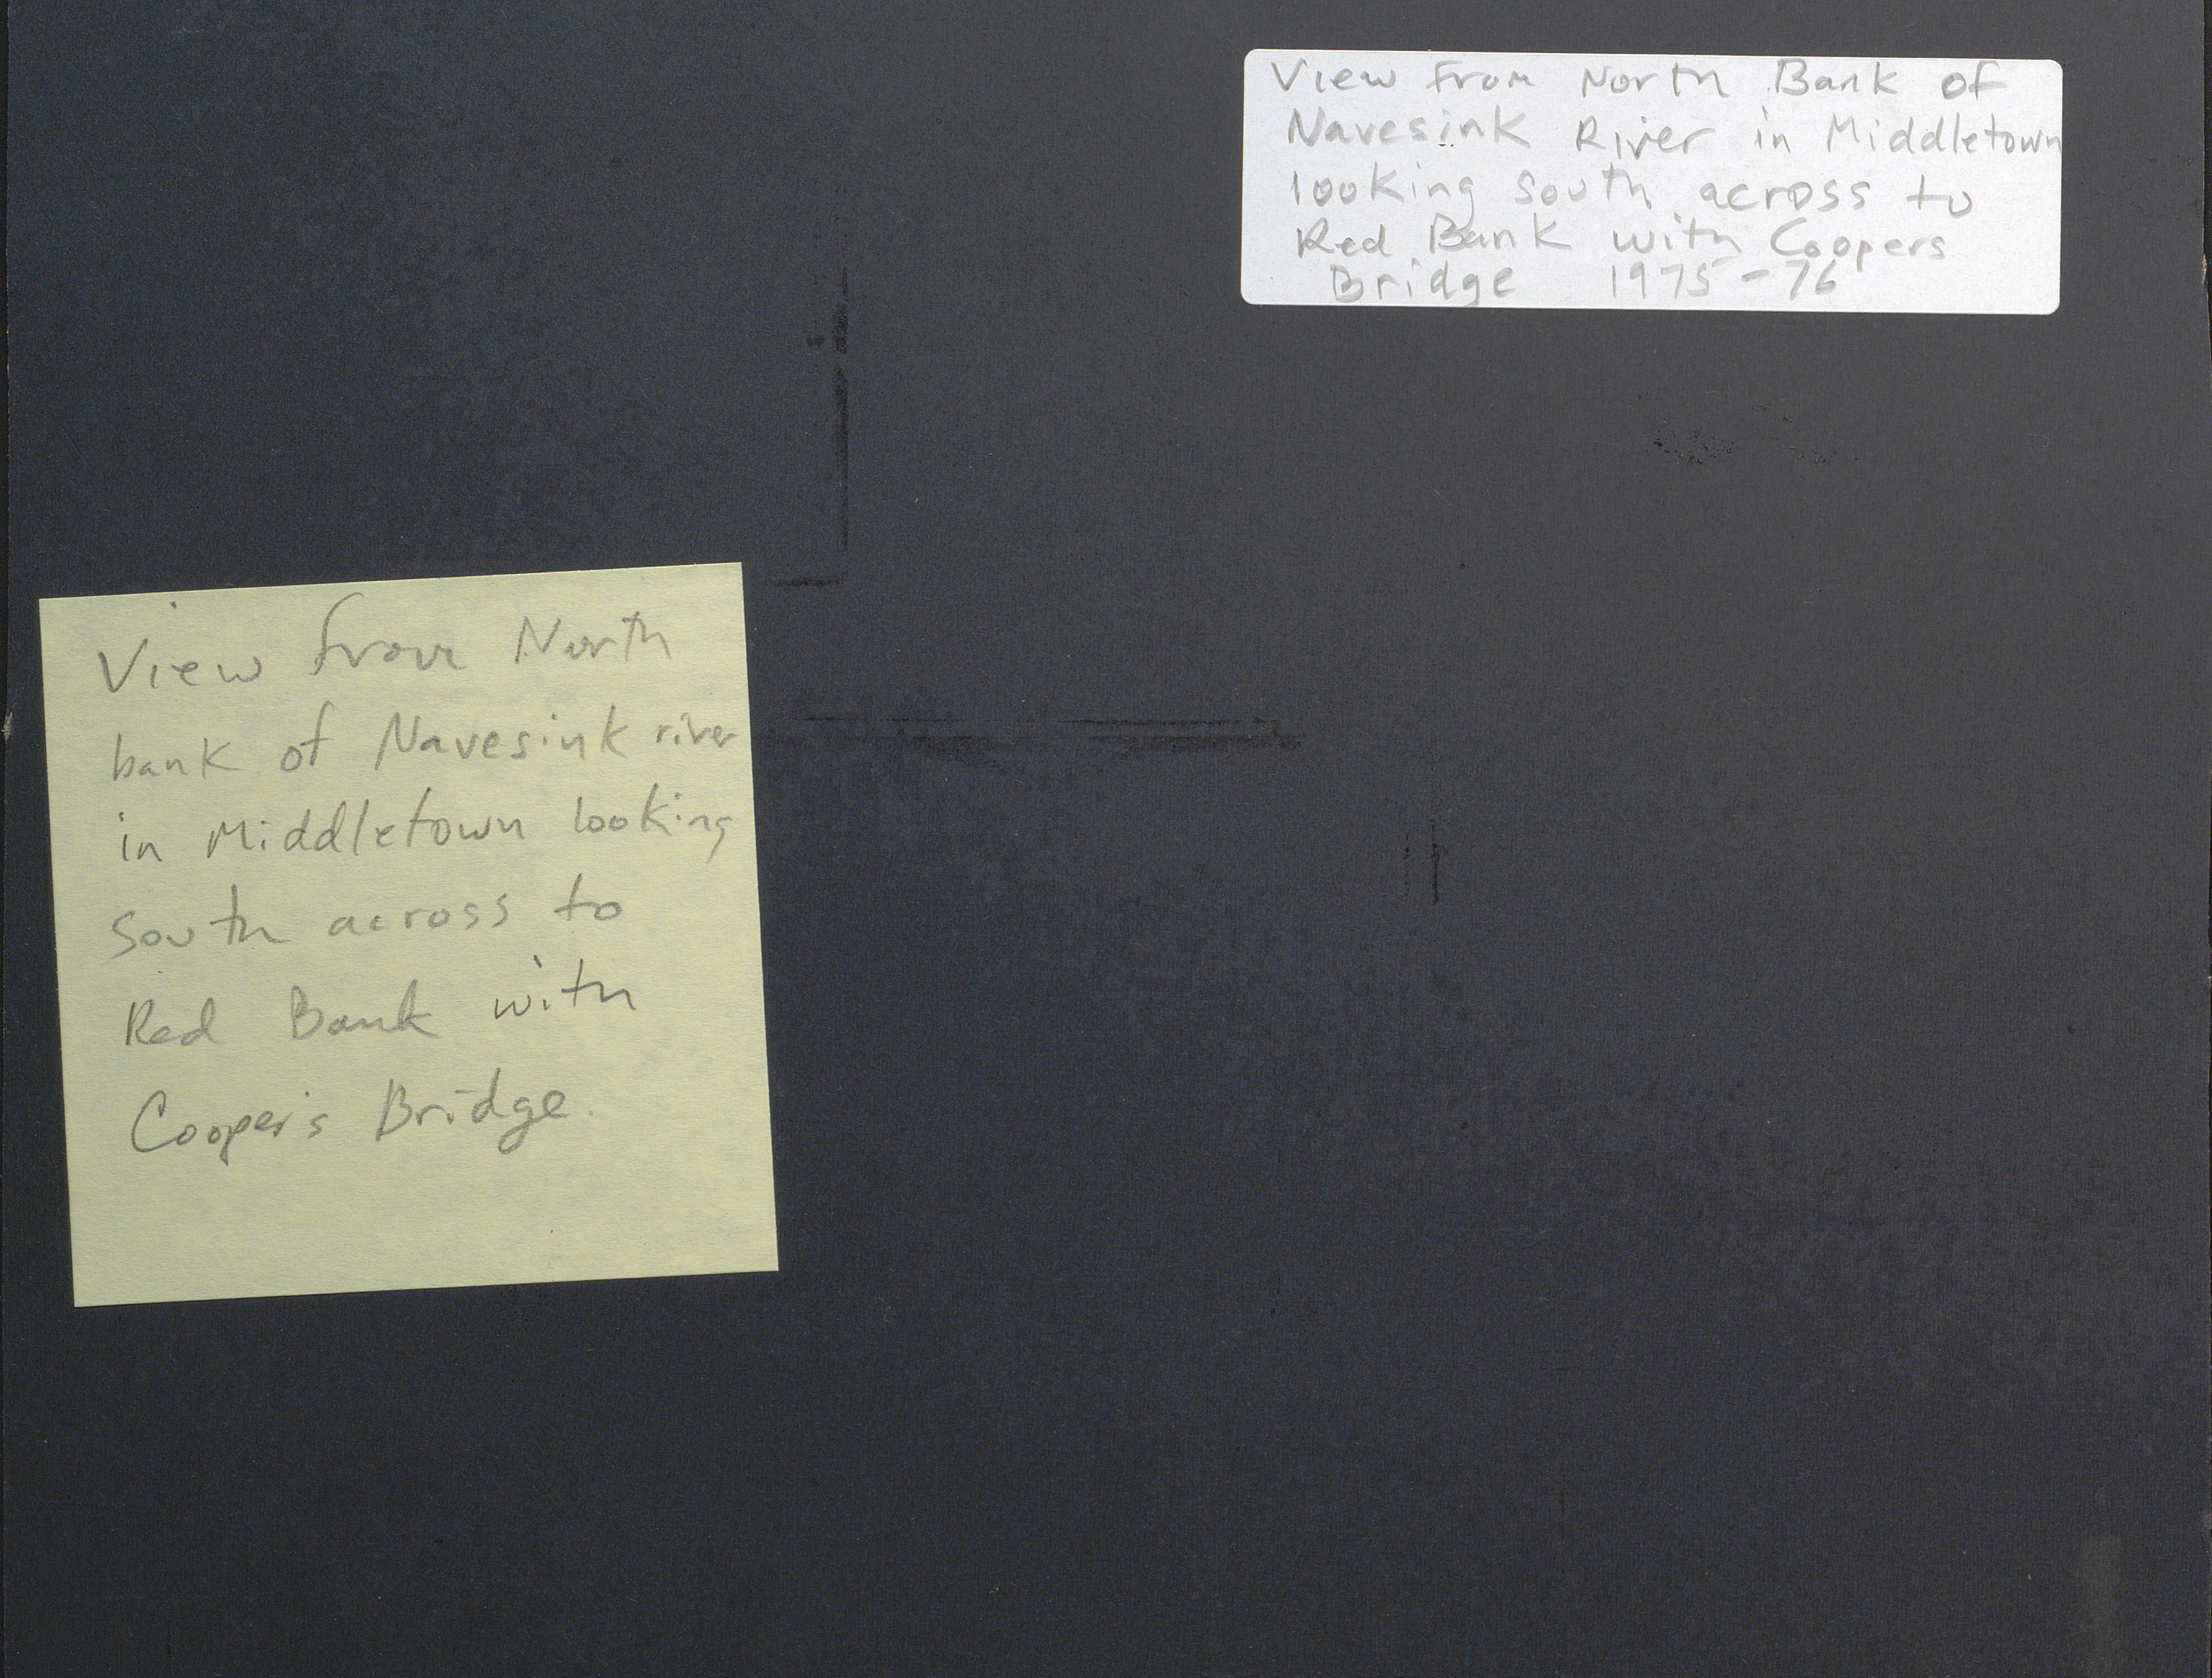 View from North Bank of
Navesink River in Middletown
looking south across to
Red Bank with Coopers
Bridge 1975-76
View from North
bank of Navesink river
in Middletown looking
South across to
Red Bank with
Cooper's Bridge.